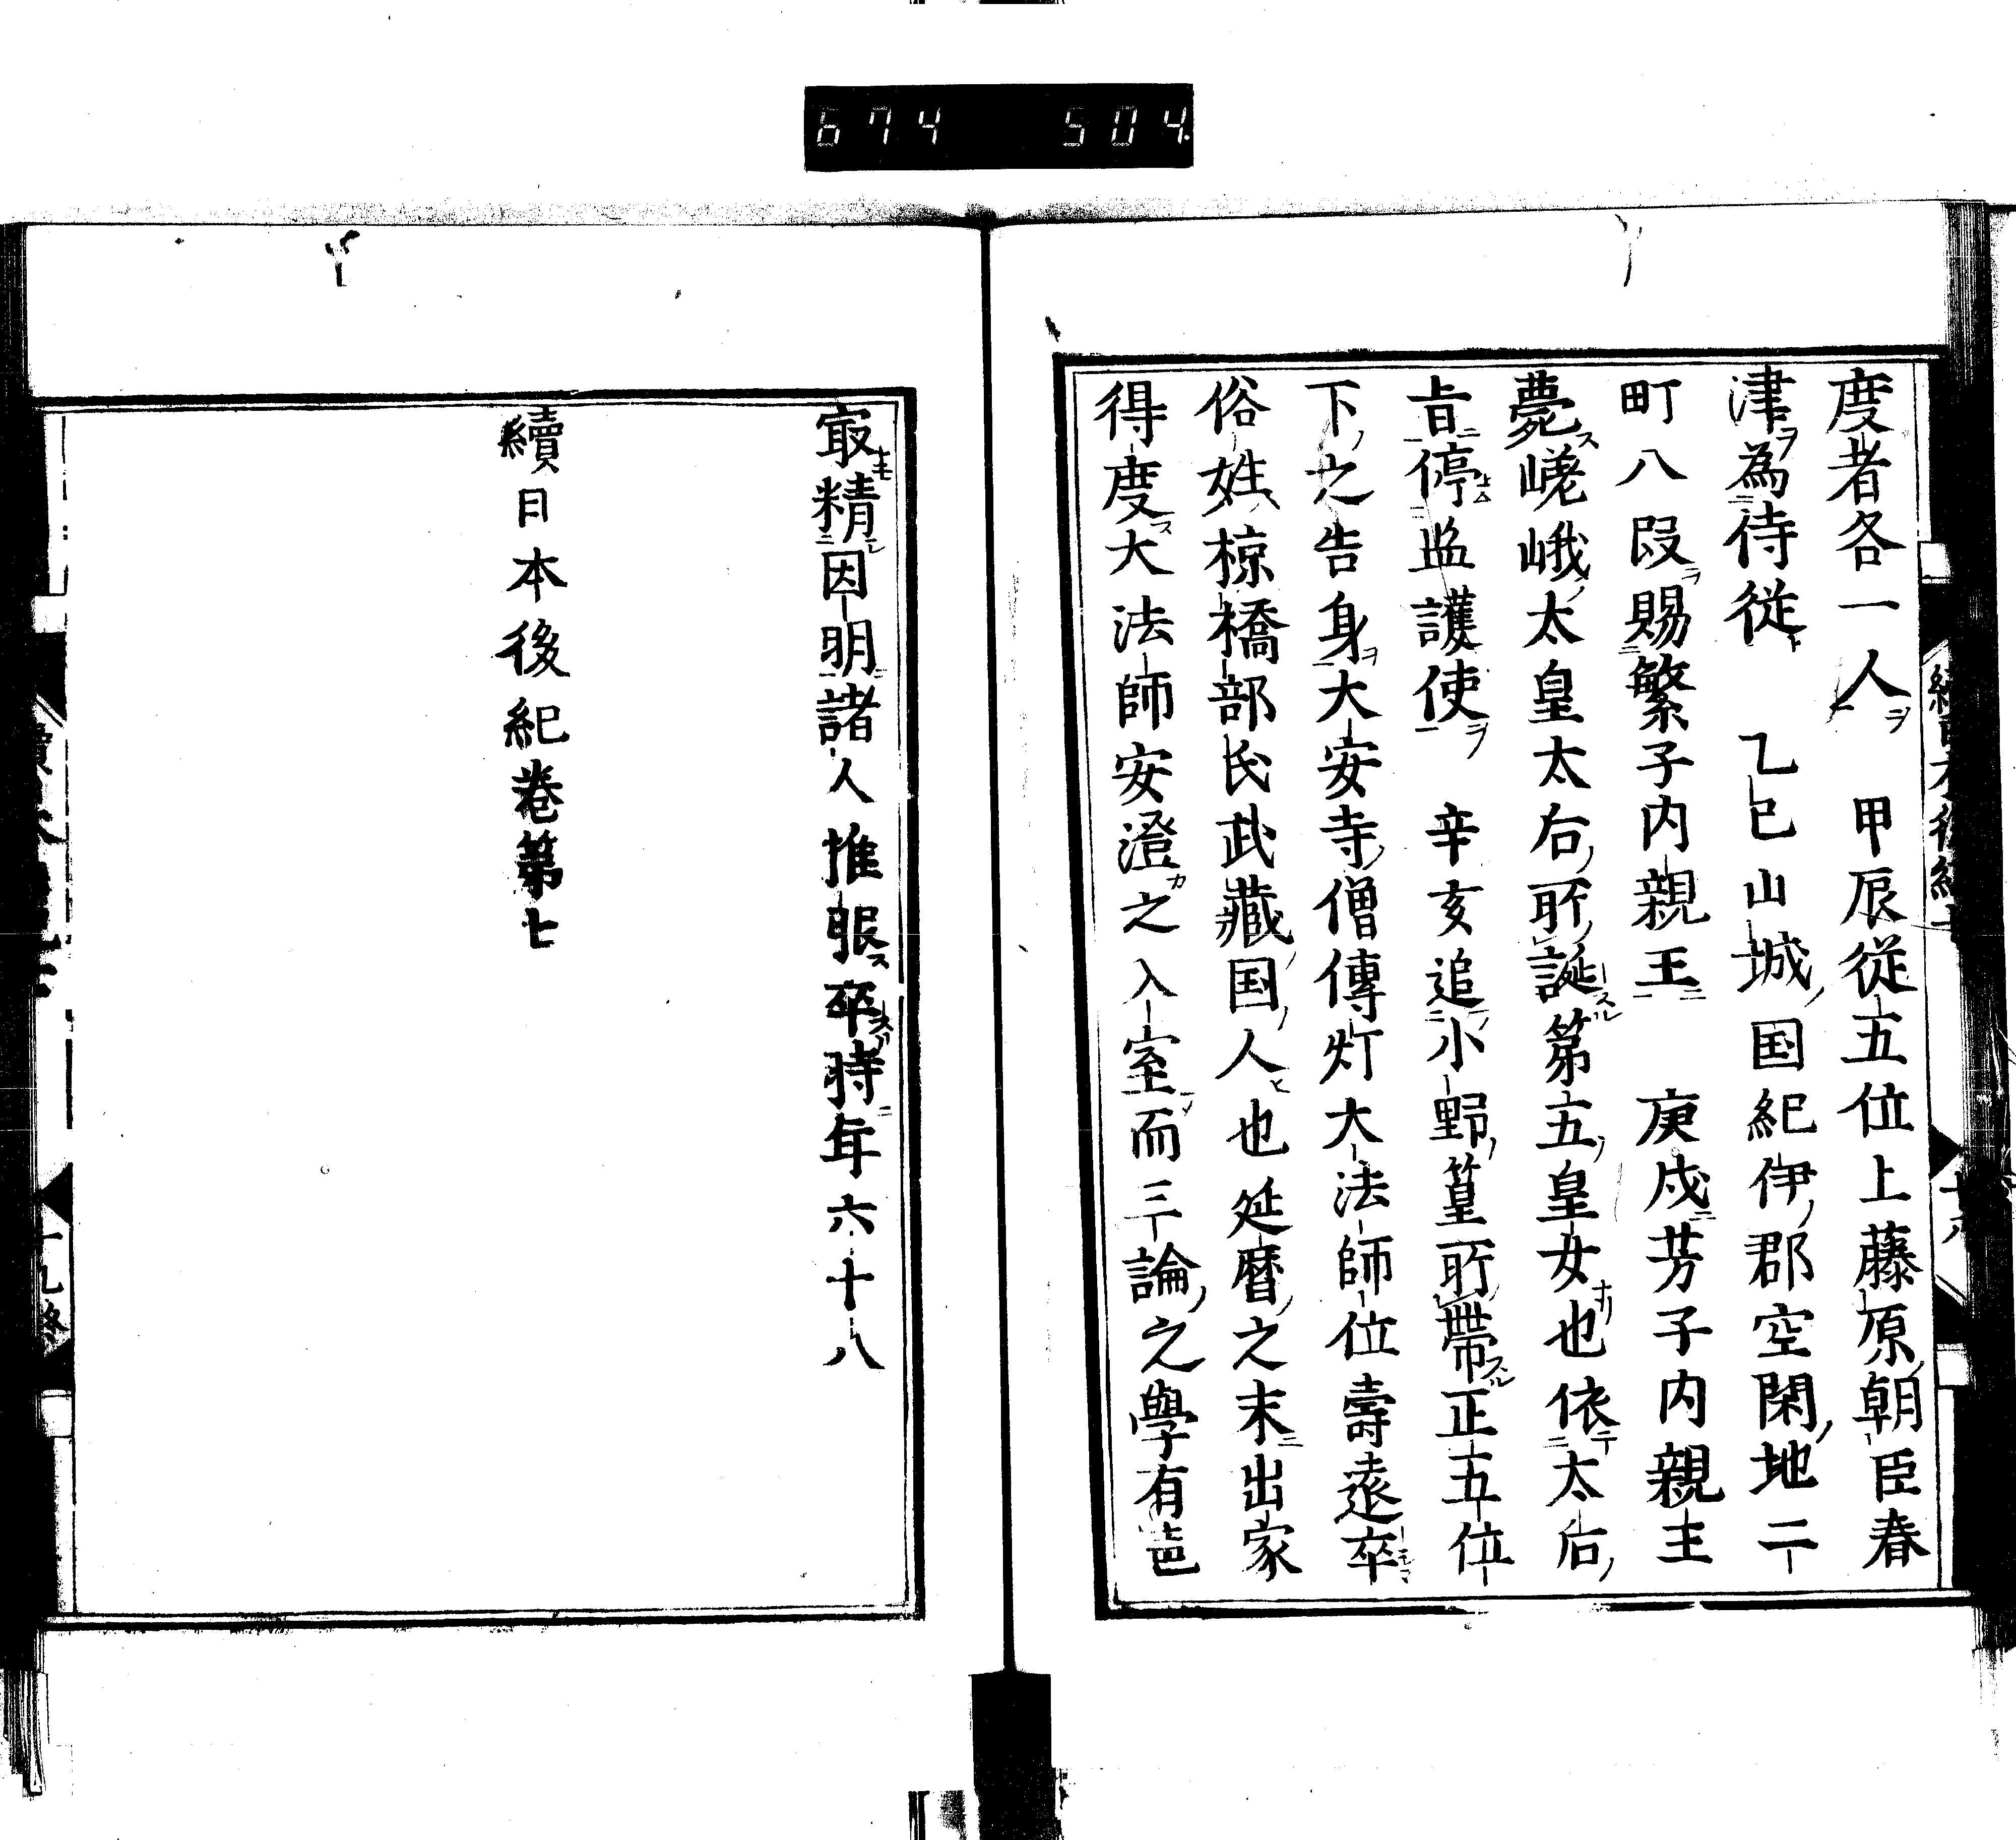 674 504
度者各一人 甲辰從五位上藤原朝臣春
津為侍従 乙巳山城国紀伊郡空閑地二
町八段賜繁子内親王 庚戌芳子内親王
薨嵯峨太皇太后所誕第五皇女也依太后
旨停監護使 辛亥追小野篁所帶正五位
下之告身大安寺僧傳灯大法師位壽遠卒
俗姓椋橋部氏武藏国人也延暦之末出家
得度大法師安澄之入室而三論之學有
最精因明諸人推服卒時年六十八
續日本後紀卷第七